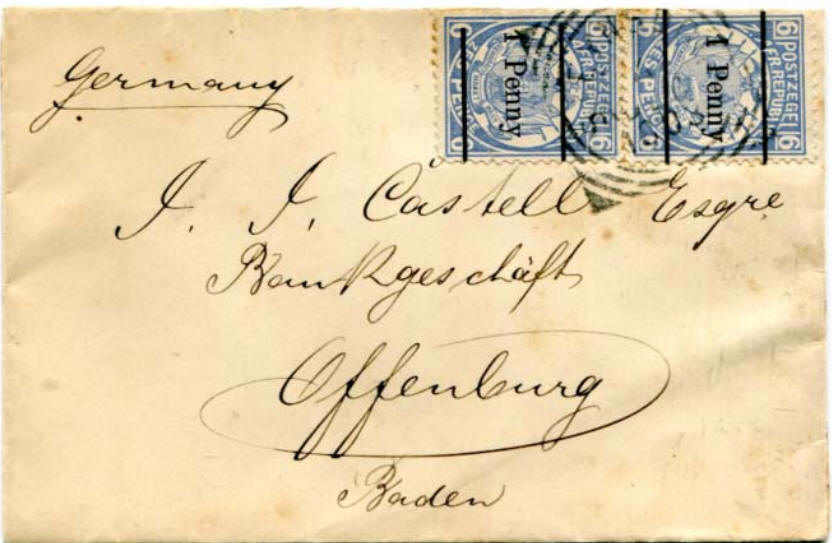 Germany
6 POSTZEGEL 6
AFR. REPUBL
ZES PENCE
1 Penny
6 POSTZEGEL 6
AFR. REPUBL
ZES PENCE
1 Penny
J. J. Castell Esqre
Bankgeschäft
Offenburg
Baden